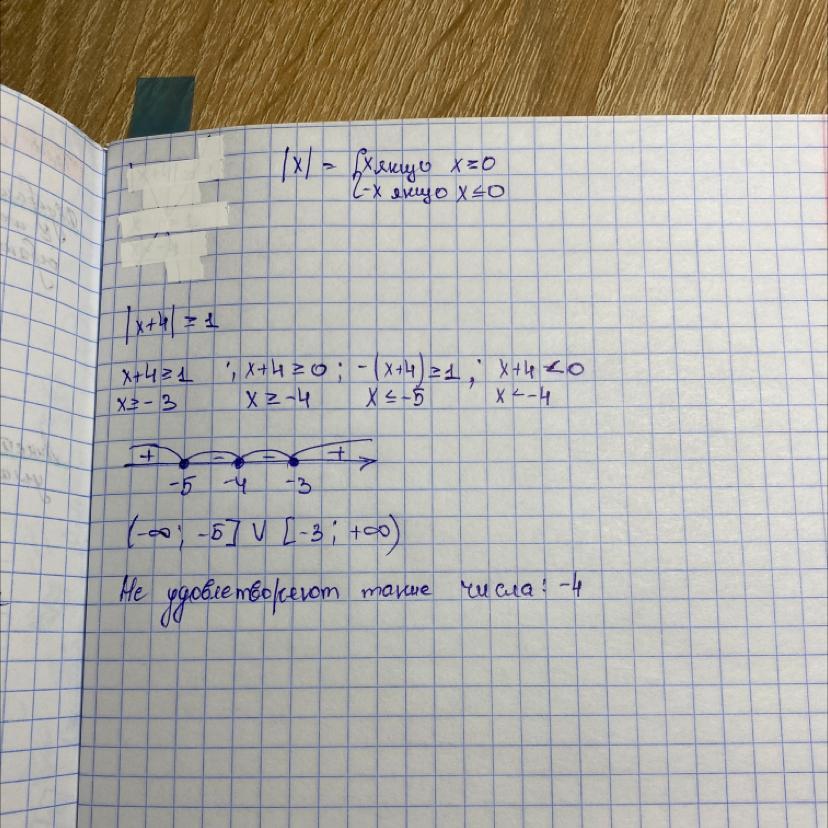 |x| = { x якщо x ≥ 0
{ -x якщо x ≤ 0
|x+4| ≥ 1
x+4 ≥ 1 ; x+4 ≥ 0 ; -(x+4) ≥ 1 ; x+4 < 0
x ≥ -3 x ≥ -4 x ≤ -5 x < -4
+ - - +
-5 -4 -3
(-∞; -5] ∨ [-3; +∞)
Не удовлетворяют такие числа: -4